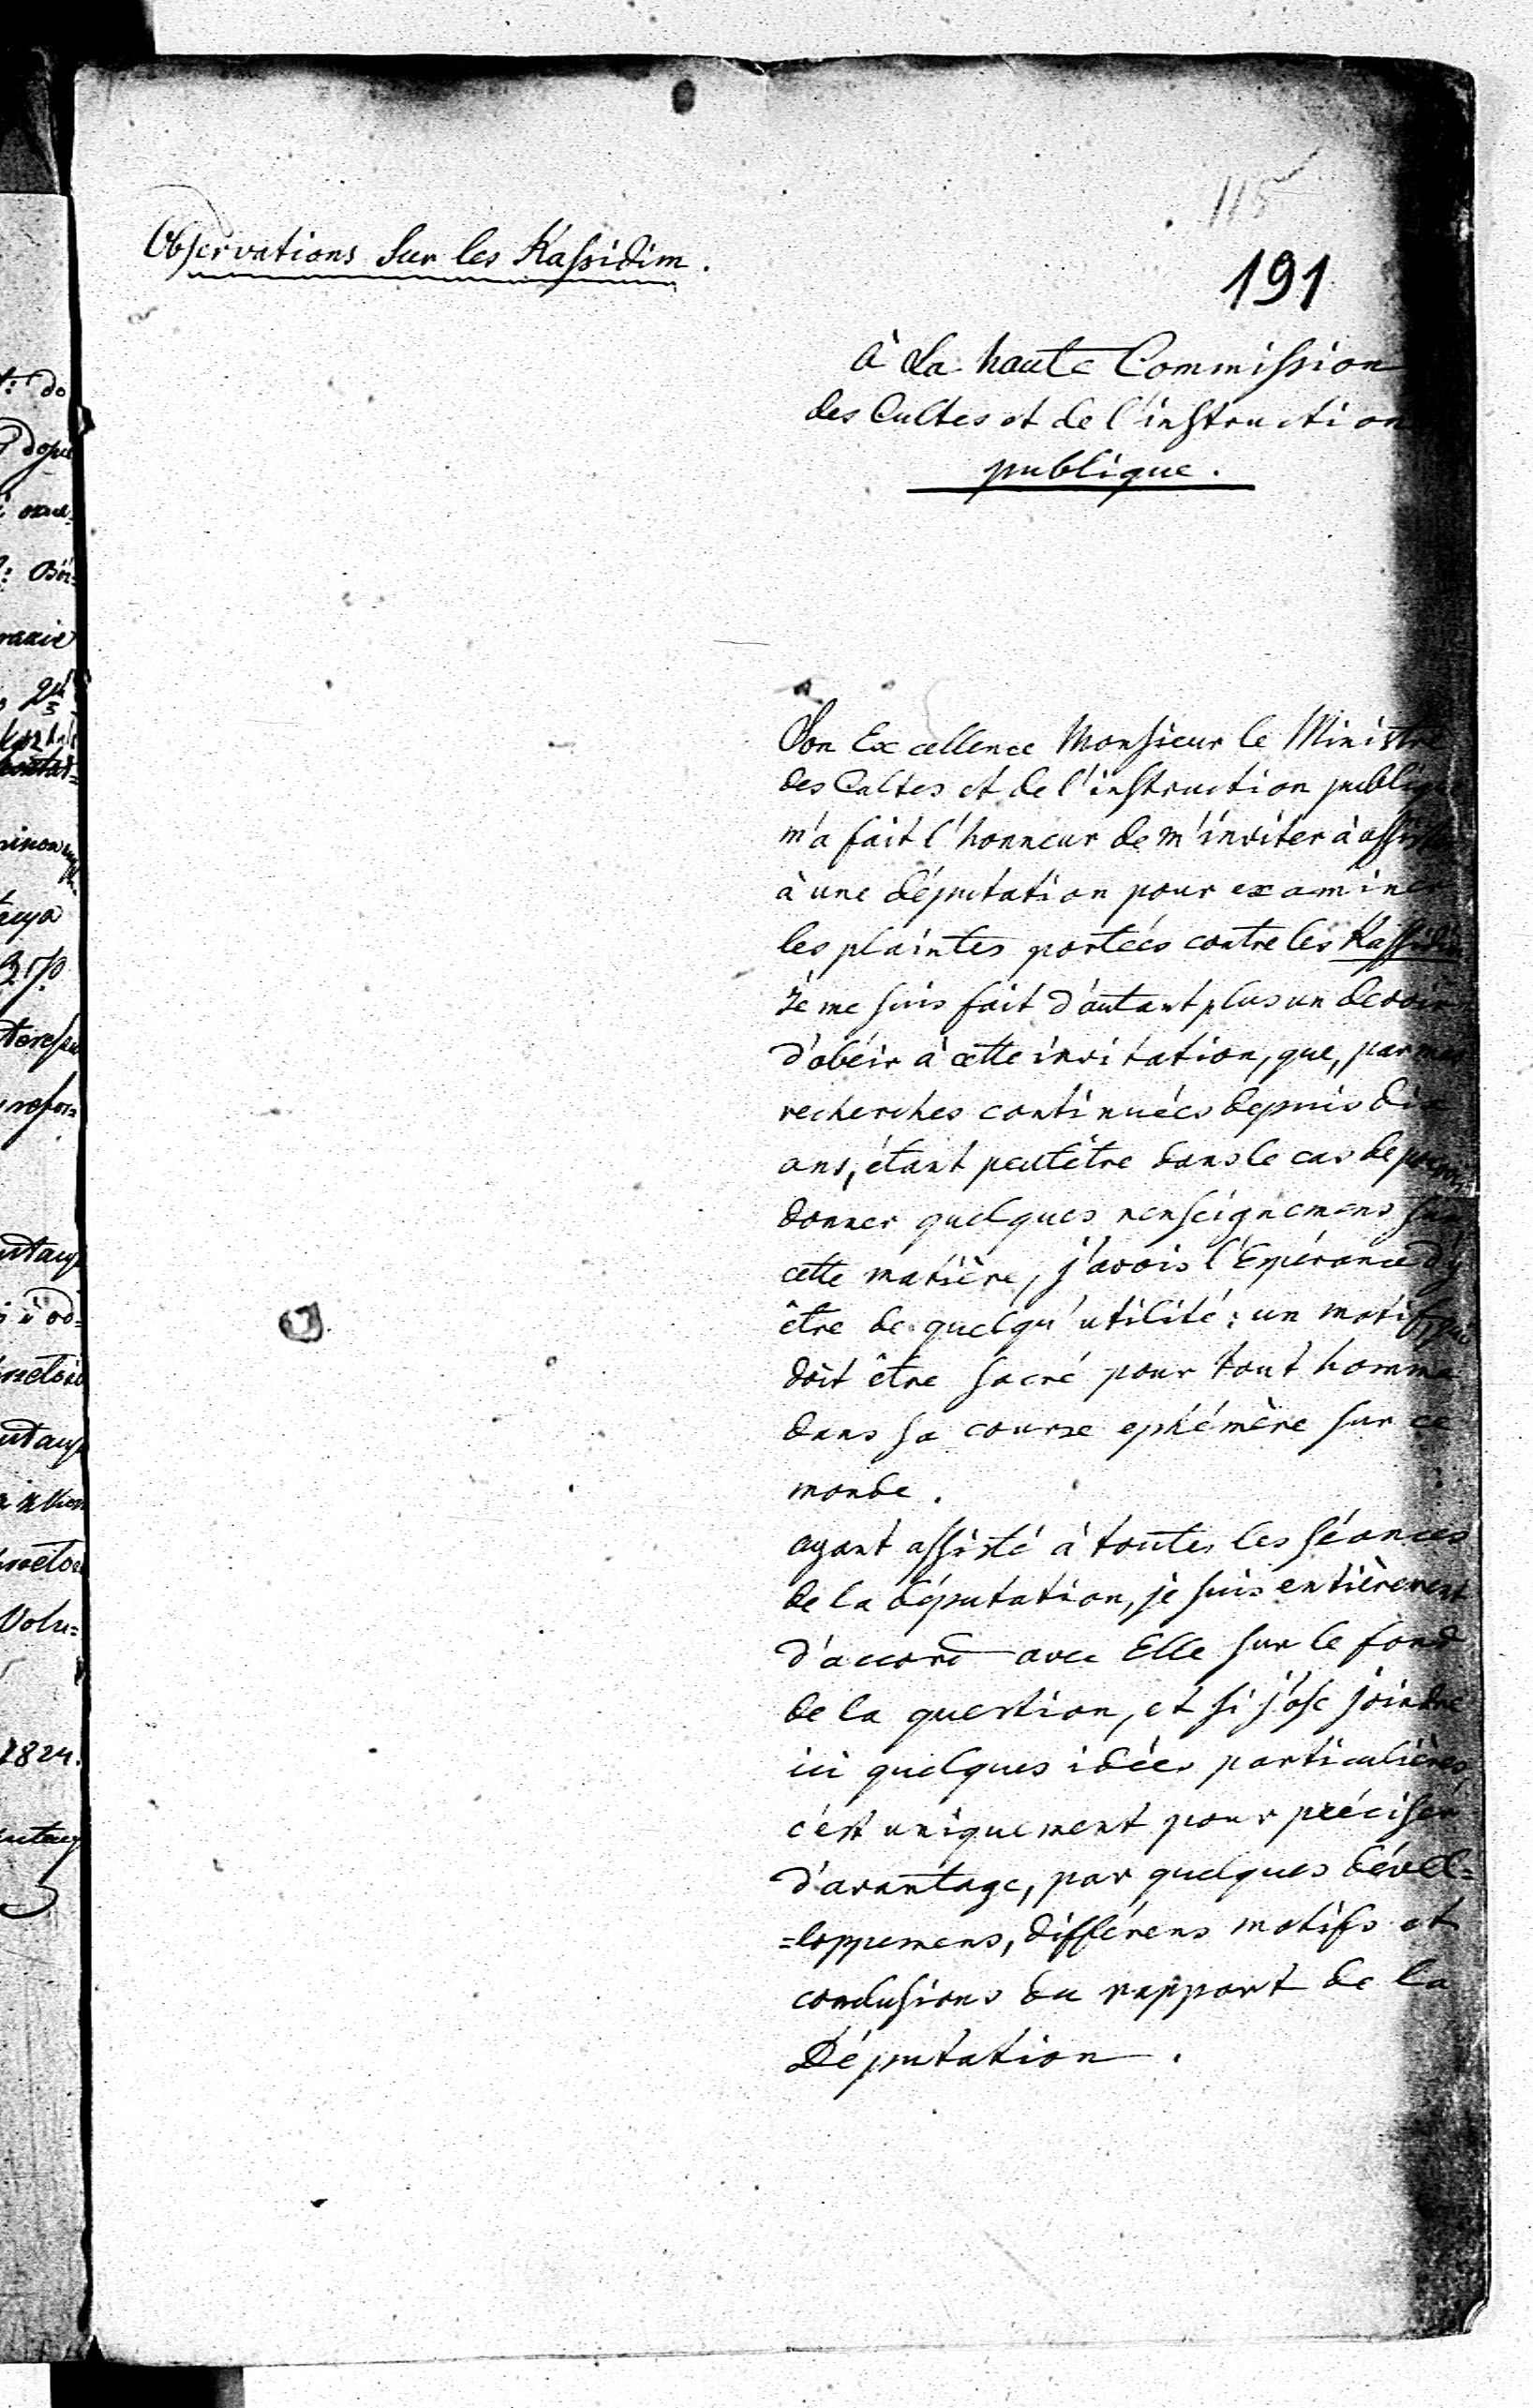 115
191
Observations Sur les Kassidim.
à La haute Commission
des Cultes et de l'instruction
publique.
Son Excellence Monsieur le Ministre
des Cultes et de l'instruction publique
m'a fait l'honneur de m'inviter à assister
à une députation pour examiner
les plaintes portées contre les Kassidim
Je me suis fait d'autant plus un devoir
d'obéir à cette invitation, que, par mes
recherches continuées depuis dix
ans, étant peutêtre dans le cas de pouvoir
donner quelques renseignemens sur
cette matière, j'avois l'Espérance d'y
être de quelqu'utilité: un motif, qui
doit être sacré pour tout homme
dans sa course ephémère sur ce
monde.
ayant assisté à toutes les séances
de la députation, je suis entièrement
d'accord avec Elle sur le fond
de la question, et si j'ose joindre
ici quelques idées particulières,
c'est uniquement pour préciser
d'avantage, par quelques dével=
=loppemens, différens motifs et
conclusions du rapport de la
Députation.
1824.